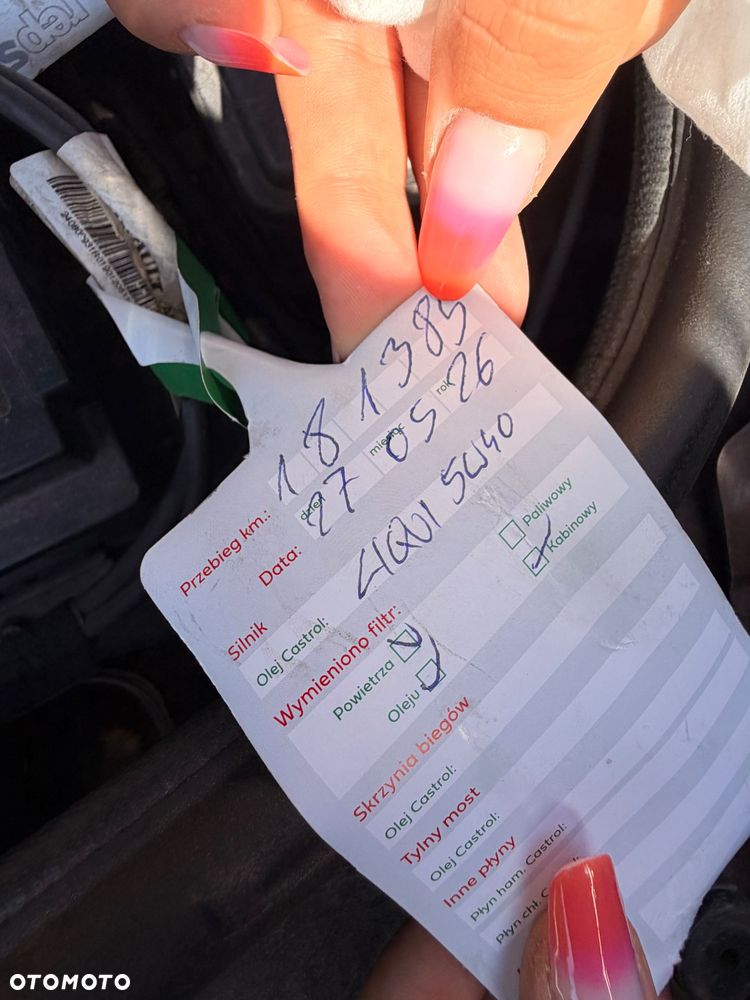 Przebieg km.: 181385
dzień miesiąc rok
Data: 27 05 26
Silnik
Olej Castrol: LIQUI 5W40
Wymieniono filtr:
Powietrza Paliwowy
Oleju Kabinowy
Skrzynia biegów
Olej Castrol:
Tylny most
Olej Castrol:
Inne płyny
Płyn ham. Castrol:
Płyn chł.
OTOMOTO